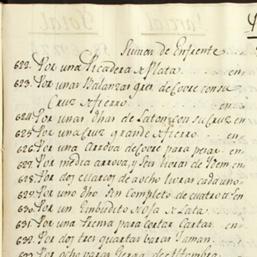 Suman de Enfrente
622. Por una Picadera de Plata en
623. Por unas Balanzas gres de Covre con su
Cruz de fierro
624. Por unas Dhas de Laton con su Cruz en
625. Por una Cruz grande de fierro en
626. Por una Arrova de Covre para pesar en
627. Por media arrova, y Seis livras de Idem en
628. Por dos Marcos de a ocho livras cada uno
629. Por uno Dho Sin Completo de quatro
630. Por un Embudito de Oja de Lata
631. Por una Prensa para Cortar Cartas en
632. Por dos tres quartas baras
633. Por ocho baras Gerga